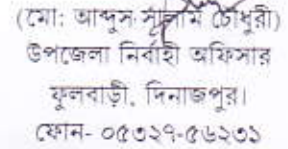 (মো: আব্দুস সালাম চৌধুরী)
উপজেলা নির্বাহী অফিসার
ফুলবাড়ী, দিনাজপুর।
ফোন- ০৫৩২৭-৫৬২৩১